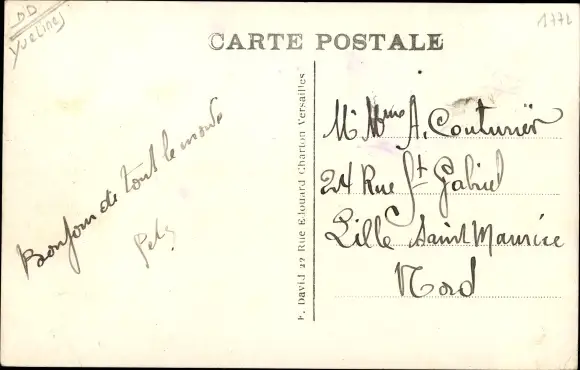 DD
Yvelines
CARTE POSTALE
Bonjour de tout le monde
F. David 22 Rue Edouard Charton Versailles
M. Mme A. Couturier
24 Rue St Gabriel
Lille Saint Maurice
Nord